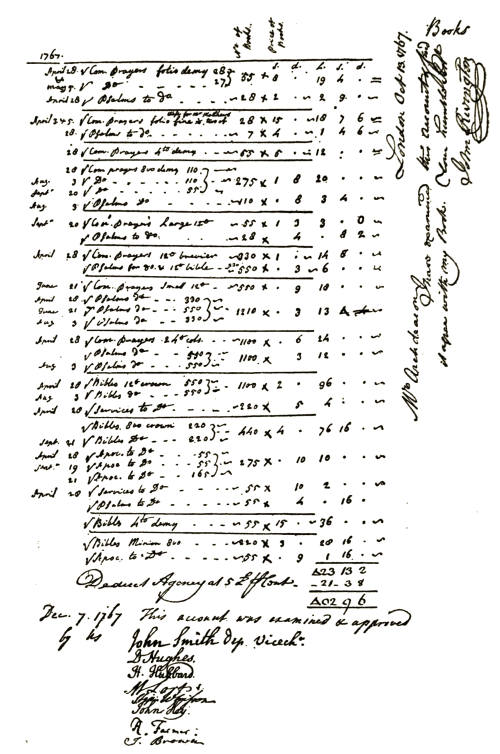 1767.
No. of Books. Price of Books. s. d. L. s. d.
April 28 √ Com. Prayers folio demy 28
May 9. √ Do 27 55 × 8 19 4 .
April 28 √ Psalms to Do 28 × 2 2 9 .
April 2 & 5. √ Com. Prayers folio fine 28 × 15 18 7 6
28. √ Psalms to Do. 7 × 4 1 4 6
28 √ Com. Prayers 4to demy 55 × 5 12 . .
28 √ Com. prayers 8vo demy 110
Aug. 3 √ Do 110 275 × 1 8 20 . .
Sept. 20 √ Do 55
Aug. 3 √ Psalms Do 110 × 8 3 4 .
Sept. 20 √ Com. Prayers Large 12o 55 × 1 3 3 . 0
√ Psalms to Do. 28 × 4 . 8 2
April 28 √ Com. Prayers 12o brevier 330 × 1 14 8 .
√ Psalms for Do. & 12o bible 550 × 3 6 . .
June 21 √ Com. Prayers Small 12o 550 × 9 18 . .
April 28 √ Psalms Do 330
June 21 √ Psalms Do 550 1210 × 3 13
Aug. 3 √ Psalms Do 330
April 28 √ Com. Prayers 24o 1100 × 6 24 . .
√ Psalms Do 550 1100 × 3 12 . .
Aug. 3 √ Psalms Do 550
April 28 √ Bibles 12o crown 550 1100 × 2 96 . .
Aug. 3 √ Bibles Do 550
April 28 √ Services to Do 220 × 5 4 . .
√ Bibles 8vo crown 220 440 × 4 76 16 .
Sept. 21 √ Bibles Do 220
April 28 √ Apoc. to Do 55
Sept. 19 √ Apoc to Do 55 275 × 10 10 . .
21 √ Apoc. to Do 165
April 28 √ Services to Do 55 × 10 2 . .
√ Psalms to Do 55 × 4 . 16 .
√ Bibles 4to demy 55 × 15 36 . .
√ Bibles Minion 8vo 220 × 3 20 16 .
√ Apoc. to Do 55 × 9 1 16 .
423 13 2
Deduct Agency at 5 P Cent 21 3 8
402 9 6
Dec. 7. 1767 This account was examined & approved
by us
John Smith Dep. Vicechr.
D Hughes.
H. Hubbard.
John Hey.
R. Farmer.
T. Brown
London Oct. 13. 1767.
Mr. Archdeacon
I have examined this Account of Books
& agree with my Book.
John Rivington